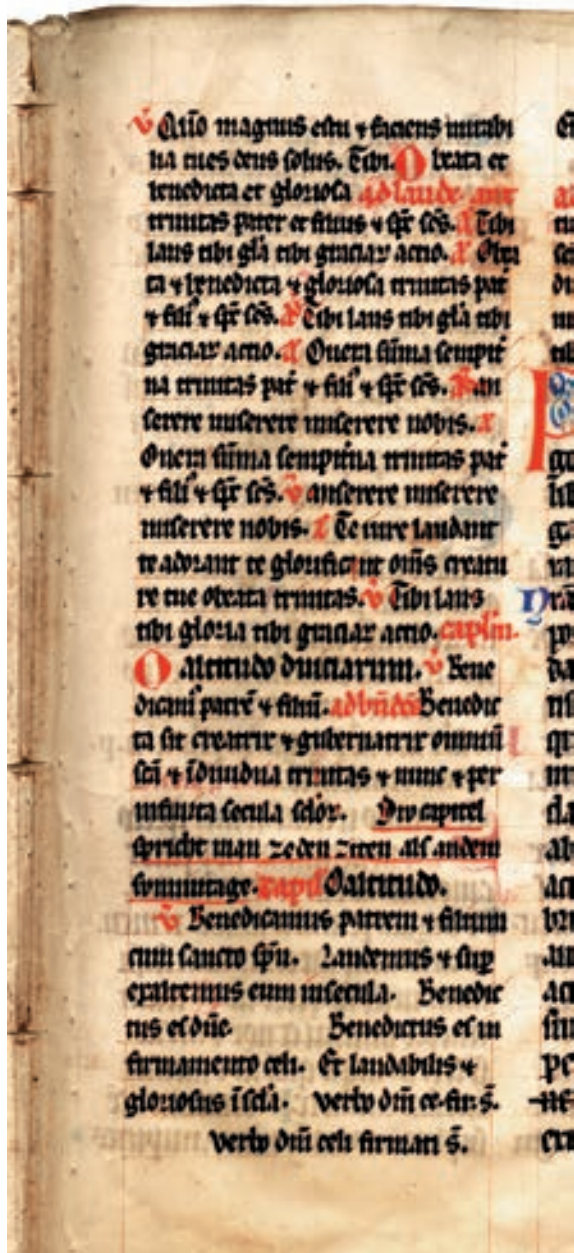 v Qm̄o magnus es tu ⁊ faciens mirabi
lia tu es deus solus. Tibi. O beata et
benedicta et gloriosa ad laude ant
trinitas pater et filius ⁊ sp̄r sc̄s. Tibi
laus tibi gl̄a tibi graciaꝝ actio. O bea
ta ⁊ benedicta ⁊ gloriosa trinitas pat̄
⁊ fili ⁊ sp̄r sc̄s. Tibi laus tibi gl̄a tibi
graciaꝝ actio. O uera sūma sempit̄
na trinitas pat̄ ⁊ fili ⁊ sp̄r sc̄s. Mi
serere miserere miserere nobis.
O uera sūma sempit̄na trinitas pat̄
⁊ fili ⁊ sp̄r sc̄s. v miserere miserere
miserere nobis. Te iure laudant
te adorant te glorificant om̄s creatu
re tue o beata trinitas. v Tibi laus
tibi gloria tibi graciaꝝ actio. caplm̄.
O altitudo diuiciarum. v Bene
dicam̄ patrē ⁊ filiū. ad bn̄dc̄s Benedic
ta sit creatrix ⁊ gubernatrix omniū
sc̄a ⁊ īdiuidua trinitas ⁊ nunc ⁊ per
infinita secula sc̄loꝝ. Diu capitel
spricht man ze den ziten als andern
sunnutage. capl̄ O altitudo.
v Benedicamus patrem ⁊ filium
cum sancto sp̄u. Laudemus ⁊ sup
exaltemus eum in secula. Benedic
tus es dn̄e Benedictus es in
firmamento celi. Et laudabilis ⁊
gloriosus ī sc̄la. verbo dn̄i ce. fir. s̄.
verbo dn̄i celi firmati s̄.